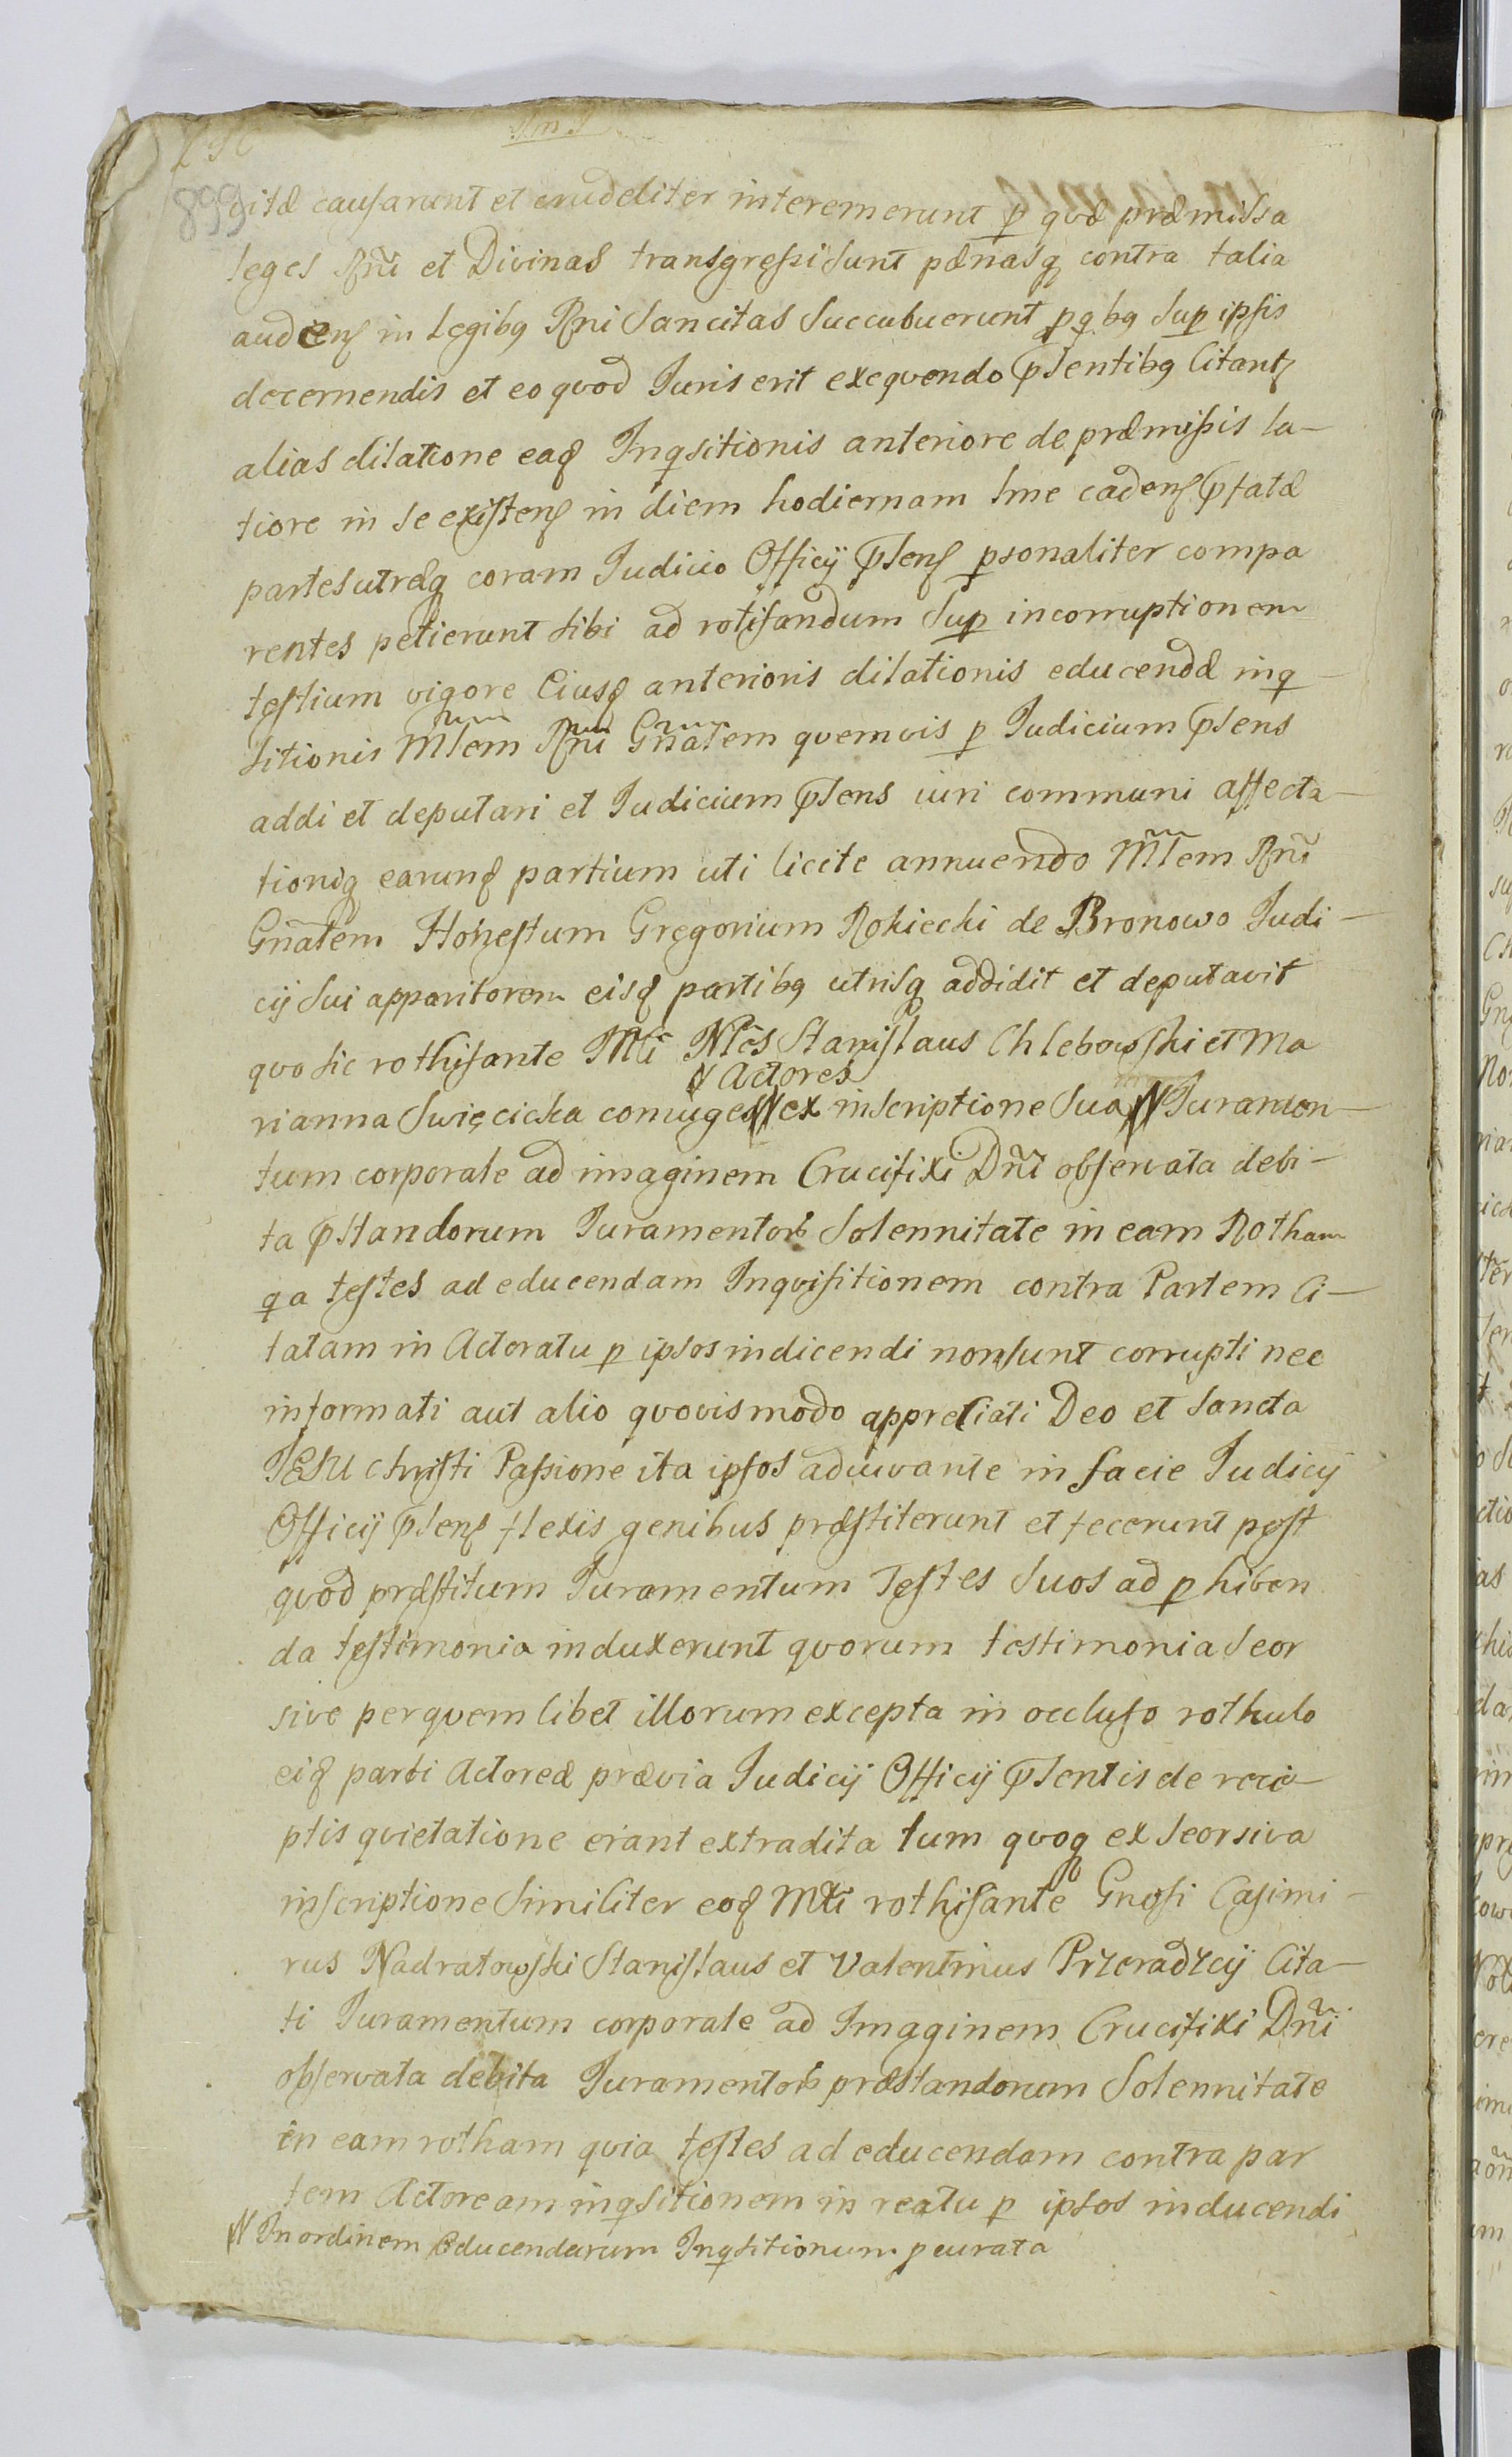 899
vitæ causarunt et crudeliter interemerunt p quæ præmissa
leges Rñi et Divinas transgressi sunt pænasq contra talia
audenſ in legibq Rñi Sancitas Succubuerunt pqbq Sup ipsis
decernendis et eo quod Juris erit exequendo pſentibq Citantꝭ
alias dilatione eaq Inqsitionis anteriore de præmissis la-
tiore in se existenſ in diem hodiernam tme cadenſ pfatæ
partes utræq coram Judicio Officÿ pſenſ psonaliter compa
rentes petierunt sibi ad rotisandum Sup incorruptionem
testium vigore Eiusq anterioris dilationis educendæ inq
sitionis Mlem Rñi Gñalem quemvis p Judicium pſens
addi et deputari et Judicium pſens iuri communi affecta-
tioniq earunq partium uti licite annuendo Mlem Rñi
Gñalem Honestum Gregorium Rokiecki de Bronowo Judi-
cÿ Sui apparitorem eisq partibq utrisq addidit et deputavit
quo sic rothisante Mli Nles Stanislaus Chlebowski et Ma
Actores
rianna Swięcicka coniuges ex inscriptione Sua Juramen-
tum corporale ad imaginem Crucifixi Dñi observata debi-
ta pstandorum Juramentorꝫ Solennitate in eam Rotham
qa testes ad educendam Inquisitionem contra Partem Ci-
tatam in Actoratu p ipsos indicendi non sunt corrupti nec
informati aut alio quovis modo appretiati Deo et Sancta
JESU Christi Passione ita ipsos adiuvante in facie Judicÿ
Officÿ pſenſ flexis genibus præstiterunt et fecerunt post
quod præstitum Juramentum Testes Suos ad phiben
da testimonia induxerunt quorum testimonia Seor
sive per quemlibet illorum excepta in occluso rothulo
eiq parti Actoreæ prævia Judicÿ Officÿ pſentis de rece-
ptis quietatione erant extradita tum quoq ex Seorsiva
inscriptione Similiter eoq Mli rothisante Gnosi Casimi-
rus Nadratowski Stanislaus et Valentinus Przeradzcÿ Cita-
ti Juramentum corporale ad Imaginem Crucifixi Dñi
observata debita Juramentorꝫ præstandorum Solennitate
in eam rotham quia testes ad educendam contra par
tem Actoream inqsitionem in reatu p ipsos inducendi
In ordinem Educendarum Inqsitionum peurata